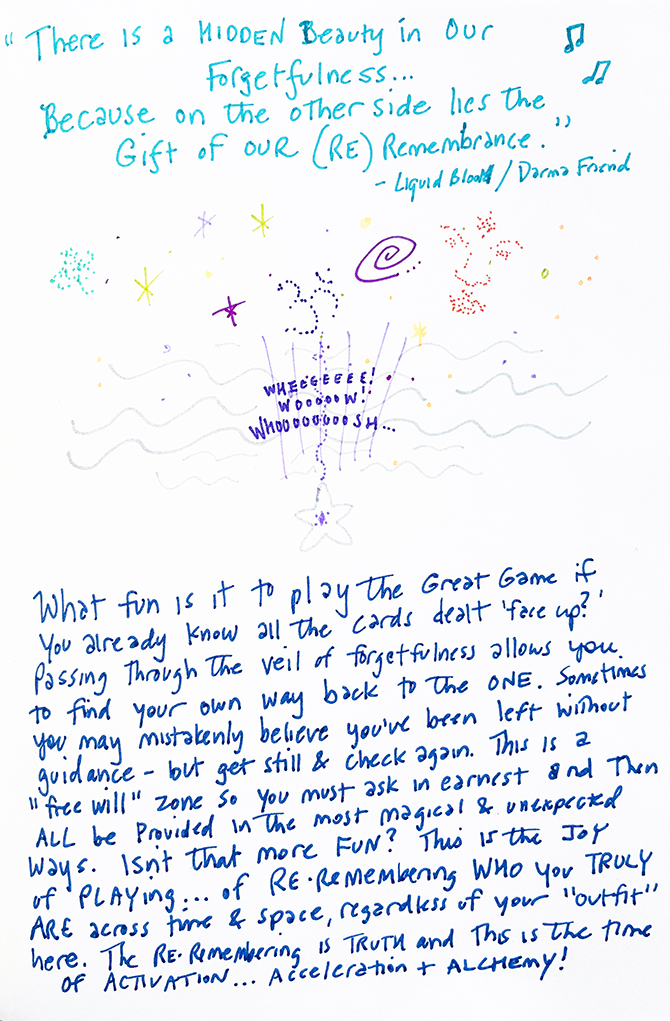 "There is a HIDDEN Beauty in Our
Forgetfulness...
Because on the other side lies the
Gift of OUR (RE) Remembrance."
- Liquid Bloom / Darma Friend
WHEEEEEEE!
WOOOOOW!
WHOOOOOOOOSH...
What fun is it to play the Great Game if
You already know all the cards dealt 'face up?'
Passing through the veil of forgetfulness allows you
to find your own way back to the ONE. Sometimes
you may mistakenly believe you've been left without
guidance - but get still & check again. This is a
"free will" zone so you must ask in earnest and Then
ALL be Provided in the most magical & unexpected
ways. Isn't that more FUN? This is the JOY
of PLAYing... of RE-Remembering WHO you TRULY
ARE across time & space, regardless of your "outfit"
here. The RE-Remembering is TRUTH and This is the time
of ACTIVATION... Acceleration + ALCHEMY!